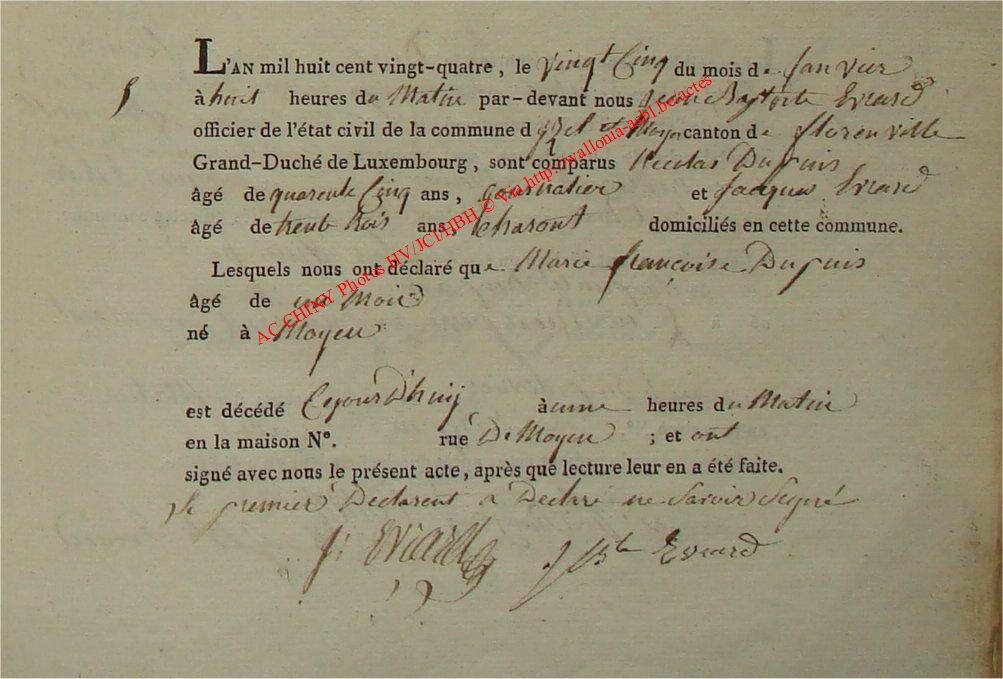 L'AN mil huit cent vingt-quatre, le vingt Cinq du mois de Janvier
5
à huit heures du Matin par-devant nous Jean Baptiste Evrard
officier de l'état civil de la commune d'Izel et Moyen canton de florenville
Grand-Duché de Luxembourg, sont comparus Nicolas Dupuis
âgé de quarente Cinq ans, journalier et Jacques Evrard
âgé de trente trois ans, Charont domiciliés en cette commune.
Lesquels nous ont déclaré que Marie françoise Dupuis
âgé de un Mois
né à Moyen
est décédé Cejourd'huy à une heures du Matin
en la maison N°. rue De Moyen ; et ont
signé avec nous le présent acte, après que lecture leur en a été faite.
Le premier Declarent a Declaré ne Savoir Segné
J: Evrard J Bte Evrard
AC CHINY Photos HV/JCI/HBH © Via http://wallonia-asbl.be/actes